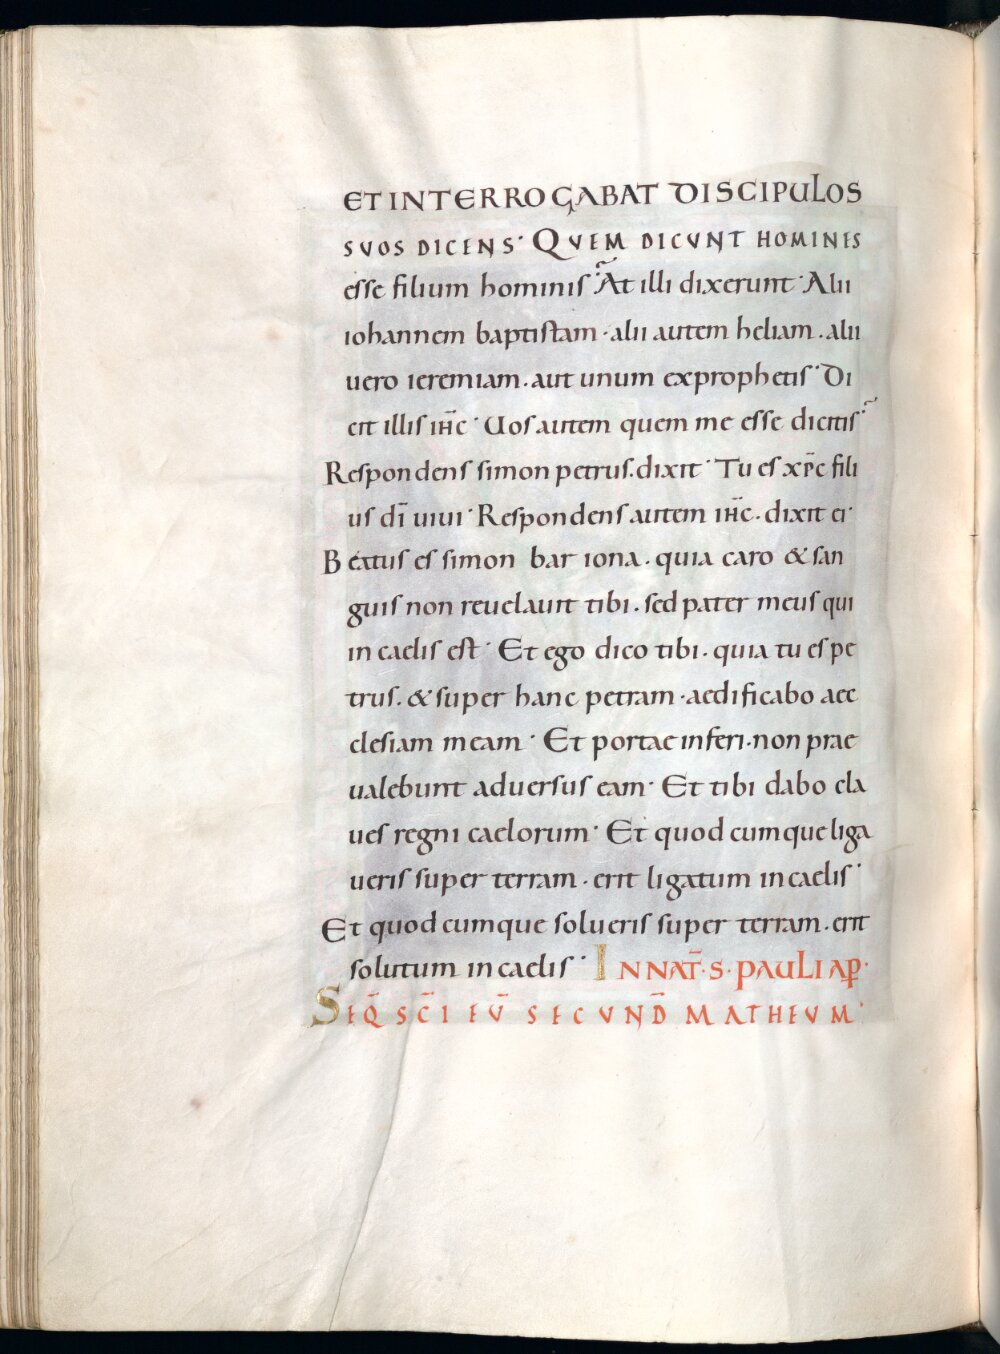 ET INTERROGABAT DISCIPULOS
SVOS DICENS· QVEM DICVNT HOMINES
esse filium hominis· At illi dixerunt· Alii
iohannem baptistam· alii autem heliam· alii
uero ieremiam· aut unum ex prophetis· Di
cit illis ih̅c· Uos autem quem me esse dicitis
Respondens simon petrus· dixit· Tu es xp̅c fili
us di̅ uiui· Respondens autem ih̅c· dixit ei·
Beatus es simon bar iona· quia caro & san
guis non reuelauit tibi· sed pater meus qui
in caelis est· Et ego dico tibi· quia tu es pe
trus· & super hanc petram· aedificabo aec
clesiam meam· Et portae inferi· non prae
ualebunt aduersus eam· Et tibi dabo cla
ues regni caelorum· Et quodcumque liga
ueris super terram· erit ligatum in caelis·
Et quodcumque solueris super terram· erit
solutum in caelis· IN NAT̅· S· PAULI AP̅·
SEQ̅ SC̅I EV̅ SECVND̅ MATHEVM·